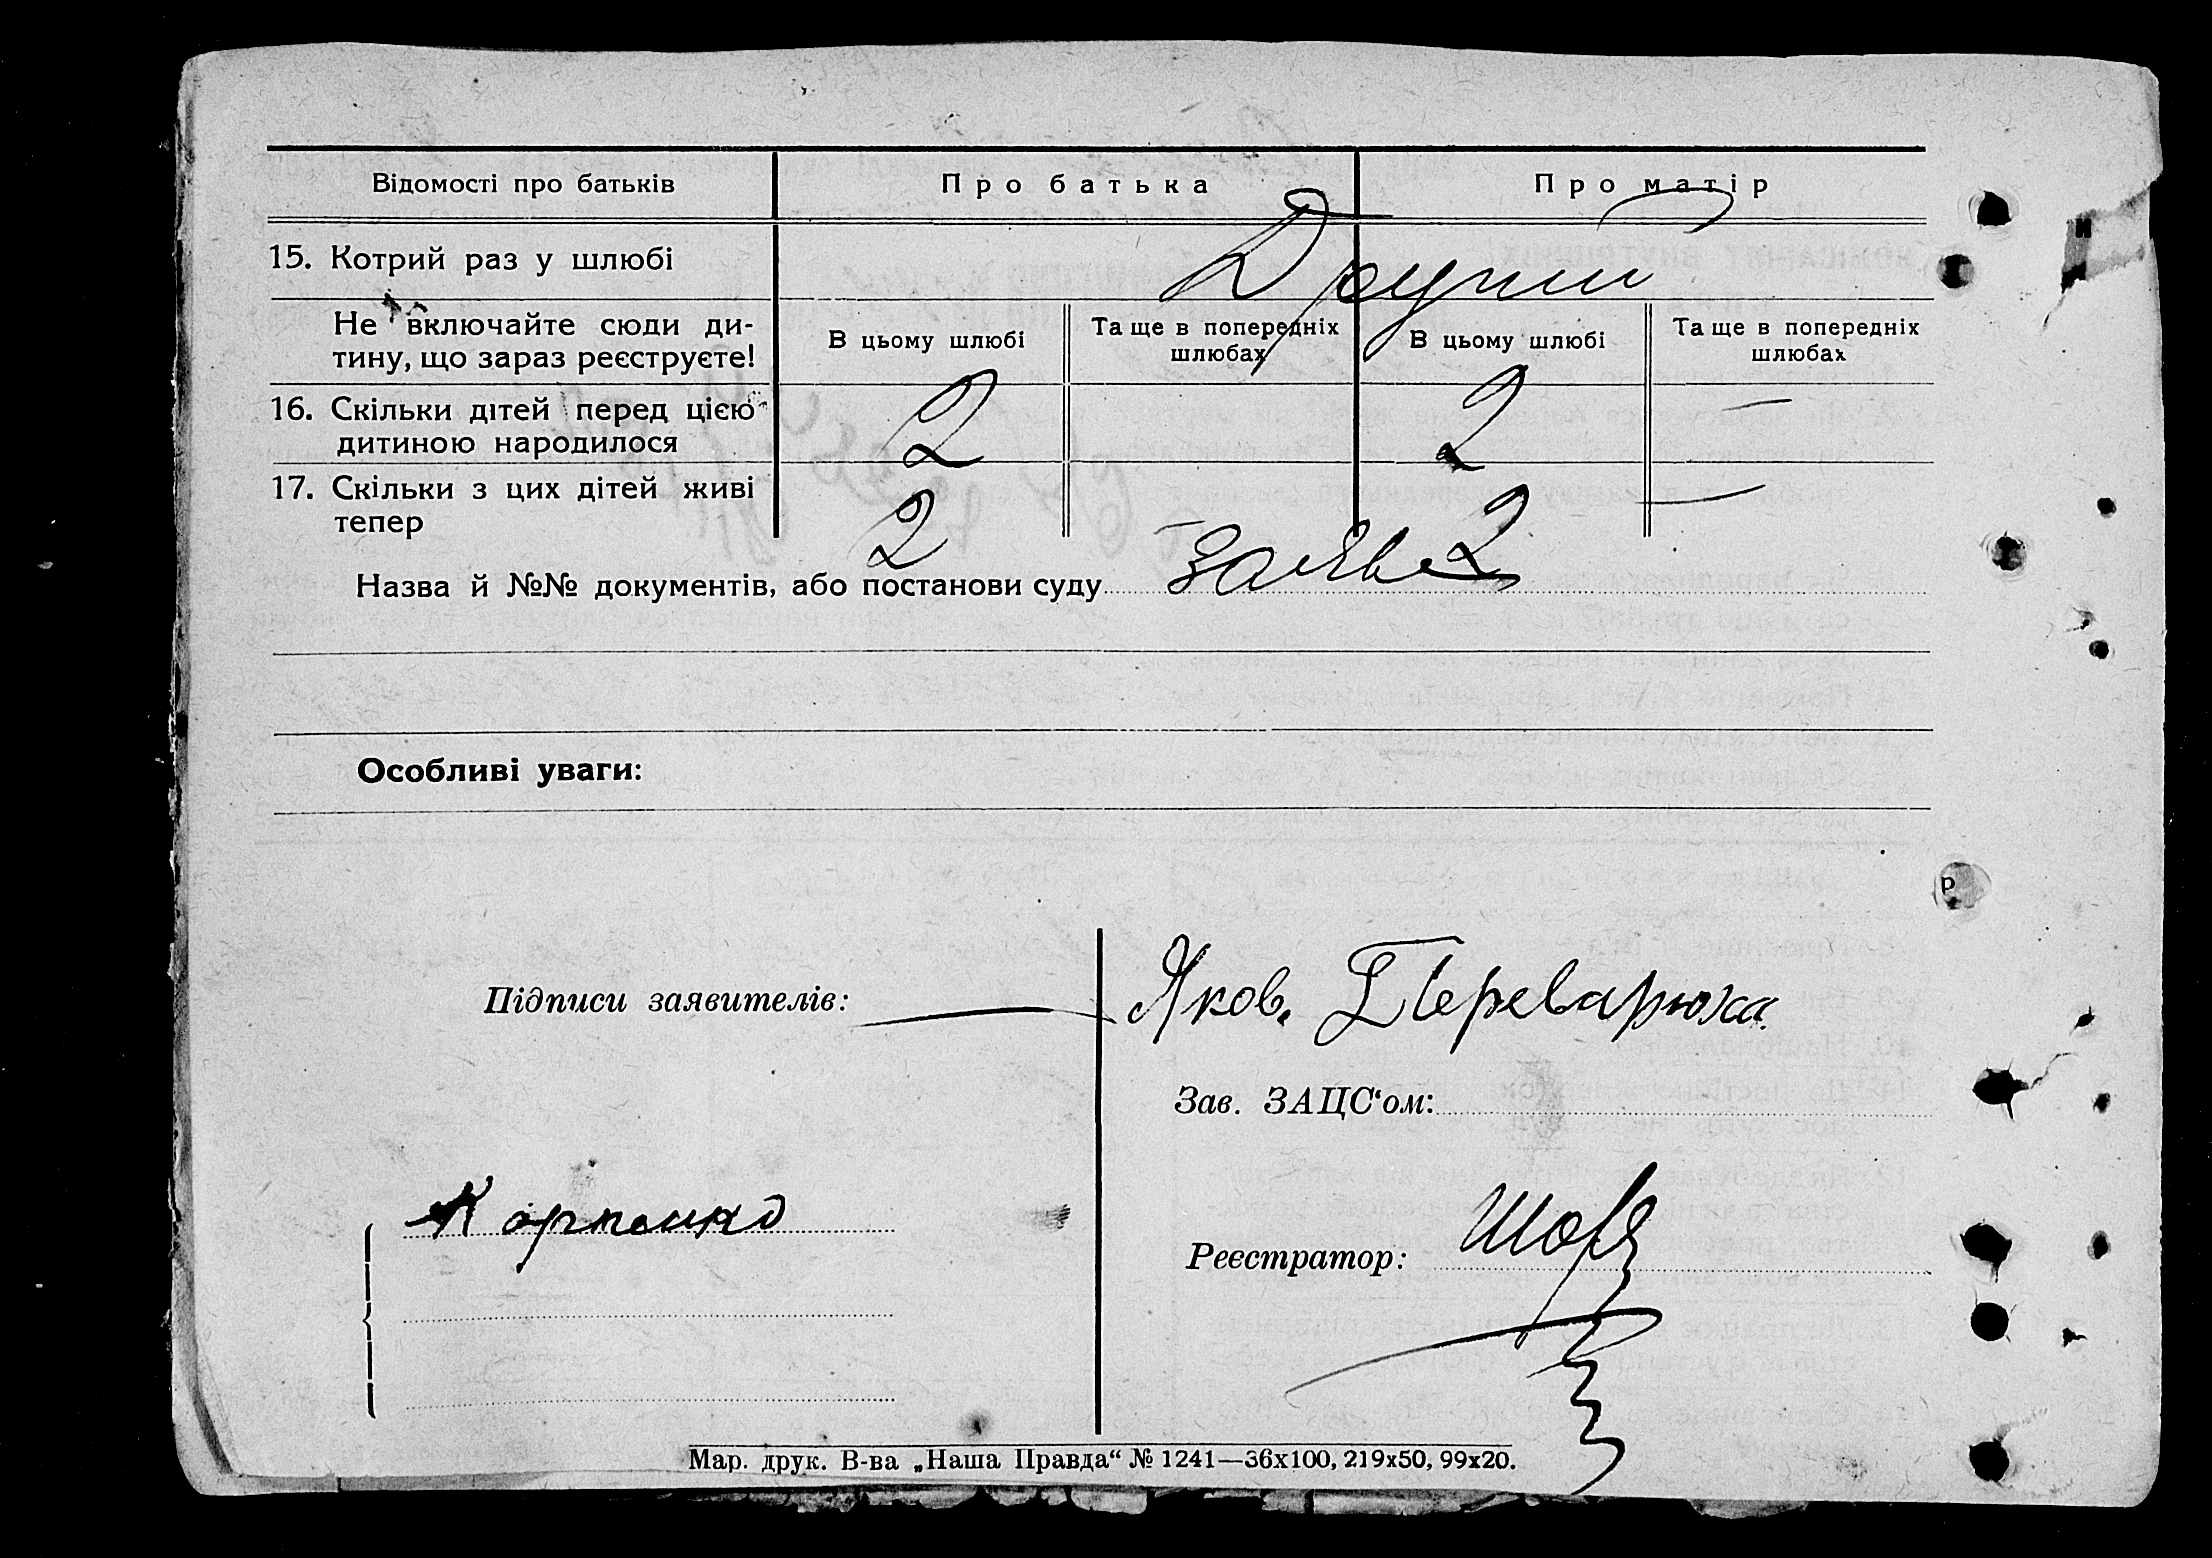 Відомості про батьків Про батька Про матір
15. Котрий раз у шлюбі Другий
Не включайте сюди ди-
тину, що зараз реєструєте!
В цьому шлюбі
Та ще в попередніх
шлюбах
В цьому шлюбі
Та ще в попередніх
шлюбах
16. Скільки дітей перед цією
дитиною народилося
2 2 —
17. Скільки з цих дітей живі
тепер
2 2 —
Назва й №№ документів, або постанови суду
Особливі уваги:
Підписи заявителів: Яков. Переварюха
Зав. ЗАЦС'ом:
Карпенко
Реєстратор:
Мар. друк. В-ва „Наша Правда“ № 1241—36х100, 219х50, 99х20.